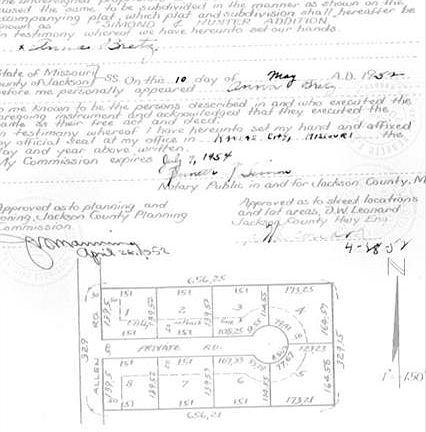 caused the same to be subdivided in the manner as shown on the
accompanying plat, which plat and subdivision shall hereafter be
known as "SIMOND & HUNTER ADDITION.
In testimony whereof we have hereunto set our hands.
x Bretz
State of Missouri
County of Jackson SS. On this 10 day of May A.D. 1952
before me personally appeared
to me known to be the persons described in and who executed the
foregoing instrument and acknowledged that they executed the
same as their free act and deed.
In testimony whereof I have hereunto set my hand and affixed
my official seal at my office in Kansas City, Missouri
day and year above written.
My Commission expires July 7, 1954
Notary Public in and for Jackson County, M
Approved as to planning and
zoning, Jackson County Planning
Commission.
April 26, 1952
Approved as to street locations
and lot areas, D.W. Leonard
Jackson County Hwy Eng.
4-28-52
N
1"-150'
656,25
151 151 151 173,25
1 2 3 4
151 151 108,25
329 ALLEN RD.
PRIVATE RD.
329,15
164,59
164,58
123,23
77,67
139,5 139,52 139,53
8 7 6 5
151 151 151 173,21
656,21